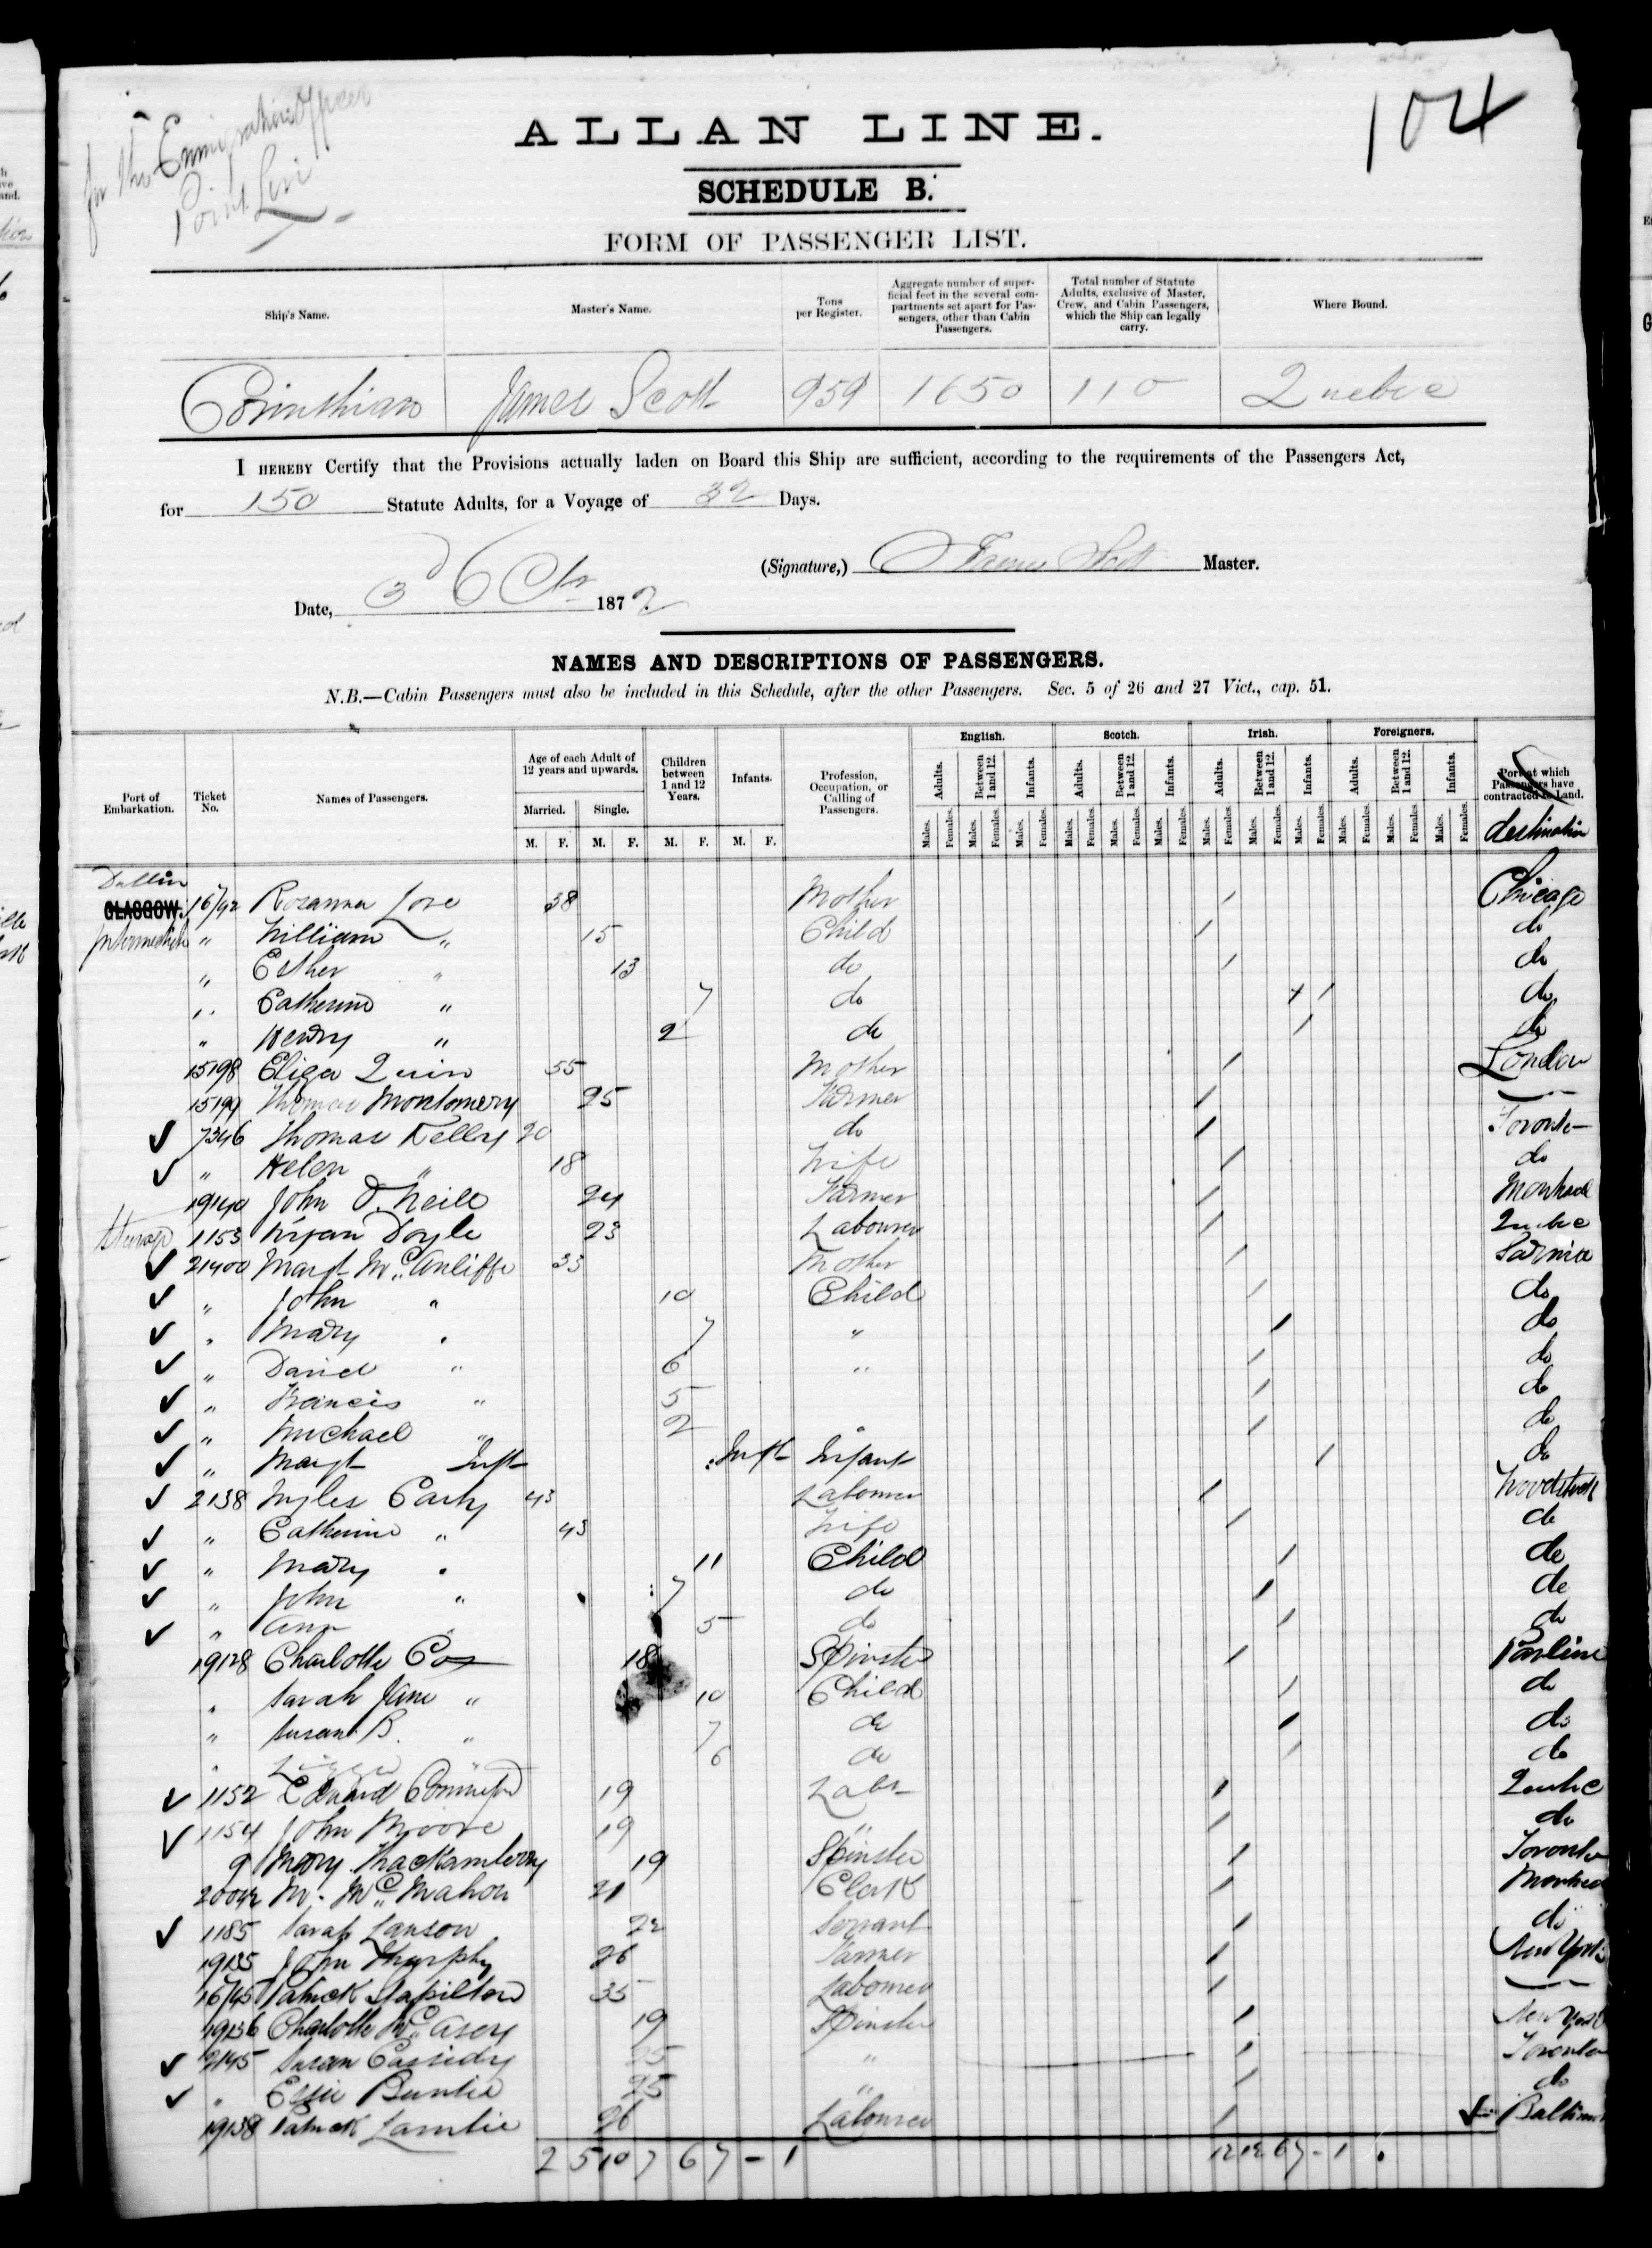 for the Emigration Officer
Point Levi
104
ALLAN LINE.
SCHEDULE B.
FORM OF PASSENGER LIST.
Ship's Name. Master's Name. Tons per Register. Aggregate number of superficial feet in the several compartments set apart for Passengers, other than Cabin Passengers. Total number of Statute Adults, exclusive of Master, Crew, and Cabin Passengers, which the Ship can legally carry. Where Bound.
Corinthian James Scott 959 1650 110 Quebec
I HEREBY Certify that the Provisions actually laden on Board this Ship are sufficient, according to the requirements of the Passengers Act,
for 150 Statute Adults, for a Voyage of 32 Days.
(Signature,) James Scott Master.
Date, 3d Octr 1872
NAMES AND DESCRIPTIONS OF PASSENGERS.
N.B.—Cabin Passengers must also be included in this Schedule, after the other Passengers. Sec. 5 of 26 and 27 Vict., cap. 51.
English. Scotch. Irish. Foreigners.
Port of Embarkation. Ticket No. Names of Passengers. Age of each Adult of 12 years and upwards. Children between 1 and 12 Years. Infants. Profession, Occupation, or Calling of Passengers. Adults. Between 1 and 12. Infants. Adults. Between 1 and 12. Infants. Adults. Between 1 and 12. Infants. Adults. Between 1 and 12. Infants. Port at which Passengers have contracted to Land.
Married. Single.
M. F. M. F. M. F. M. F. Males. Females. Males. Females. Males. Females. Males. Females. Males. Females. Males. Females. Males. Females. Males. Females. Males. Females. Males. Females. Males. Females. Males. Females. destination
Dublin
GLASGOW. 16/92 Rosanna Love 38 Mother / Chicago
Intermediate " William " 15 Child / do
" Esther " 13 do / do
" Catherine " 7 do / do
" Henry " 2 do / do
15198 Eliza Quinn 55 Mother / London
15199 Thomas Montomery 25 Farmer / —
✓ 7346 Thomas Kelly 20 do / Toronto
✓ " Helen " 18 Wife / do
19140 John O'Neill 24 Farmer / Montreal
Steerage 1153 Doyle 23 Labourer / Quebec
✓ 21400 Margt McAnliffe 33 Mother / Sarnia
✓ " John " 10 Child / do
✓ " Mary " 7 " / do
✓ " Daniel " 6 " / do
✓ " Francis " 5 / do
✓ " Michael " 2 " / do
✓ " Margt Inft Inft Infant / do
✓ 2138 Myles Carty 43 Labourer / Woodstock
✓ " Catherine " 43 Wife / do
✓ " Mary " 11 Child / do
✓ " John " 7 do / do
✓ " Ann " 5 do / do
19128 Charlotte Cox 18 Spinster /
" Sarah Jane " 10 Child / do
" Susan B. " 7 do / do
" Lizzie " 6 do / do
✓ 1152 Edward 19 Labr / Quebec
✓ 1154 John Moore 19 " / do
9 Mary Thackamberry 19 Spinster / Toronto
20042 M. McMahon 21 Clerk / Montreal
✓ 1185 Sarah Lawson 22 Servant / do
19135 John Murphy 26 Farmer / New York
16/45 Patrick Stapilton 35 Labourer / —
19136 Charlotte McCasey 19 Spinster / New York
✓ 2145 Susan Cassidy 25 " / Toronto
✓ " Essie Buntie 25 " / do
19138 Patrick Lambie 26 Labourer / ✓ Baltimore
2 5 10 7 6 7 - 1 12 12 6 7 - 1